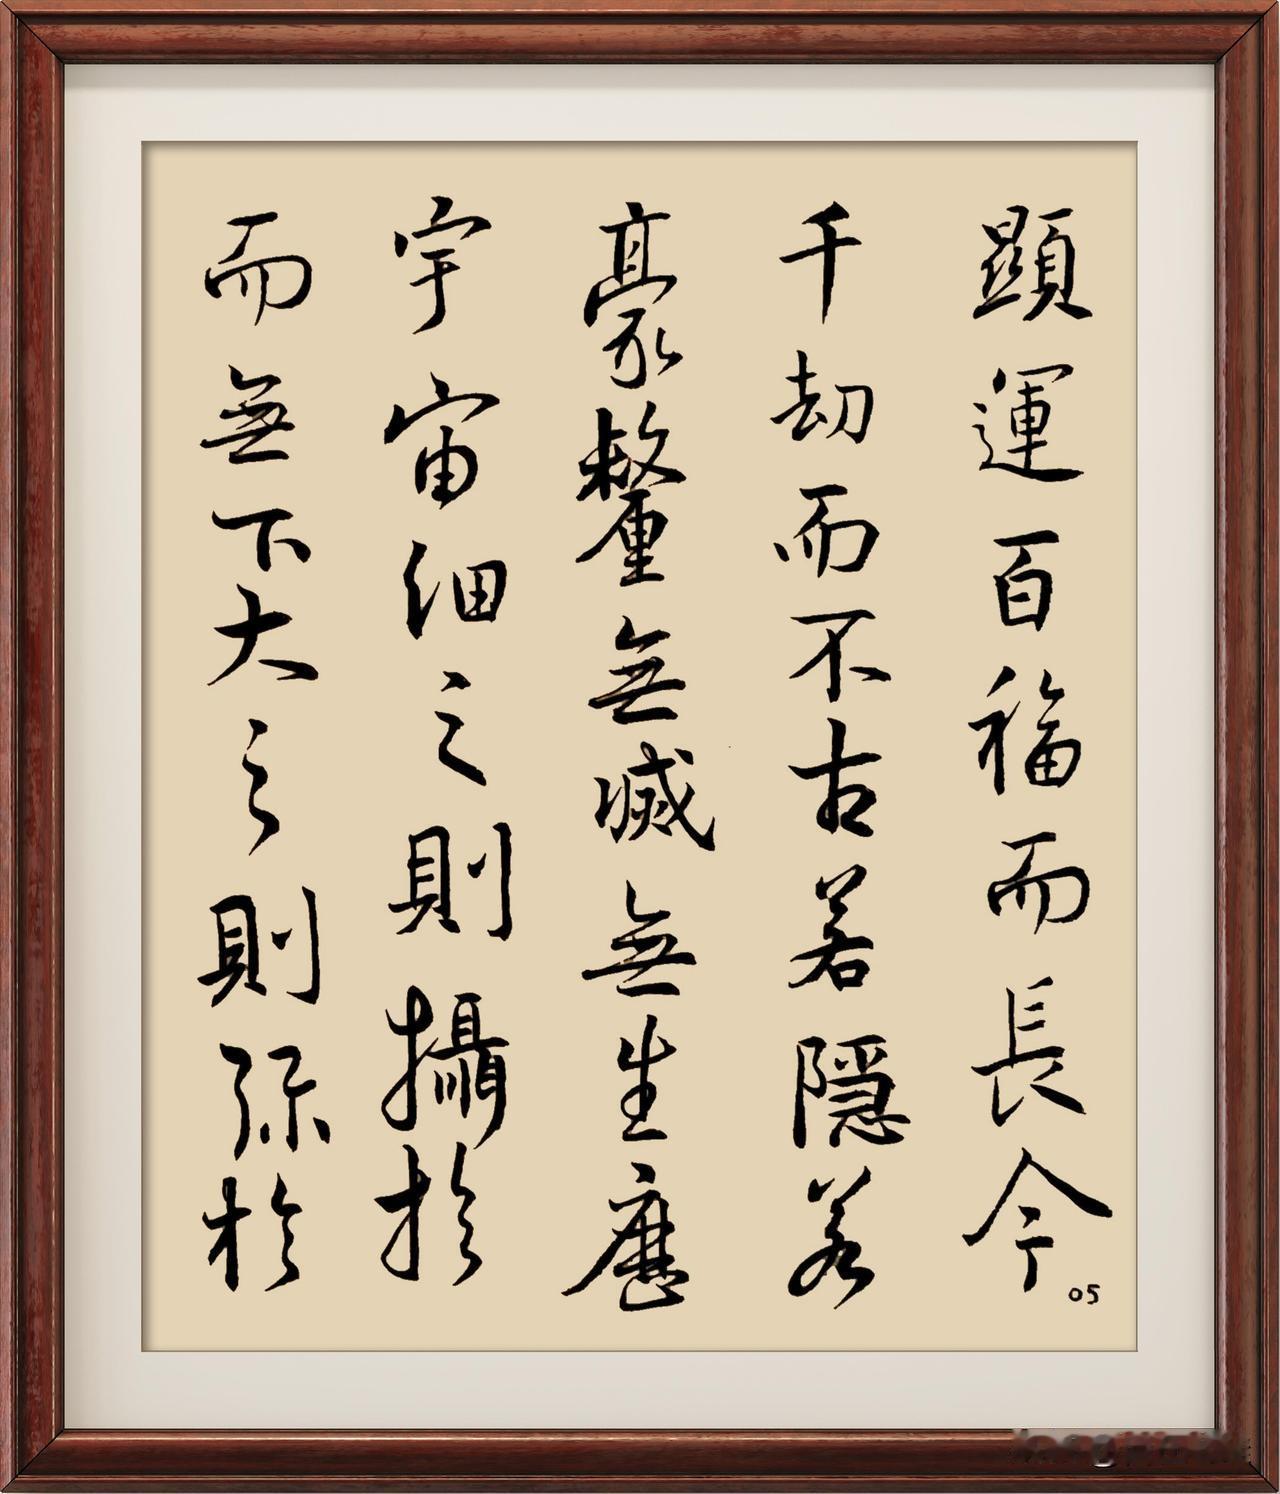 顯運百福而長今
千劫而不古若隱若
豪釐無滅無生歷
宇宙細之則攝於
而無下大之則弥於
05